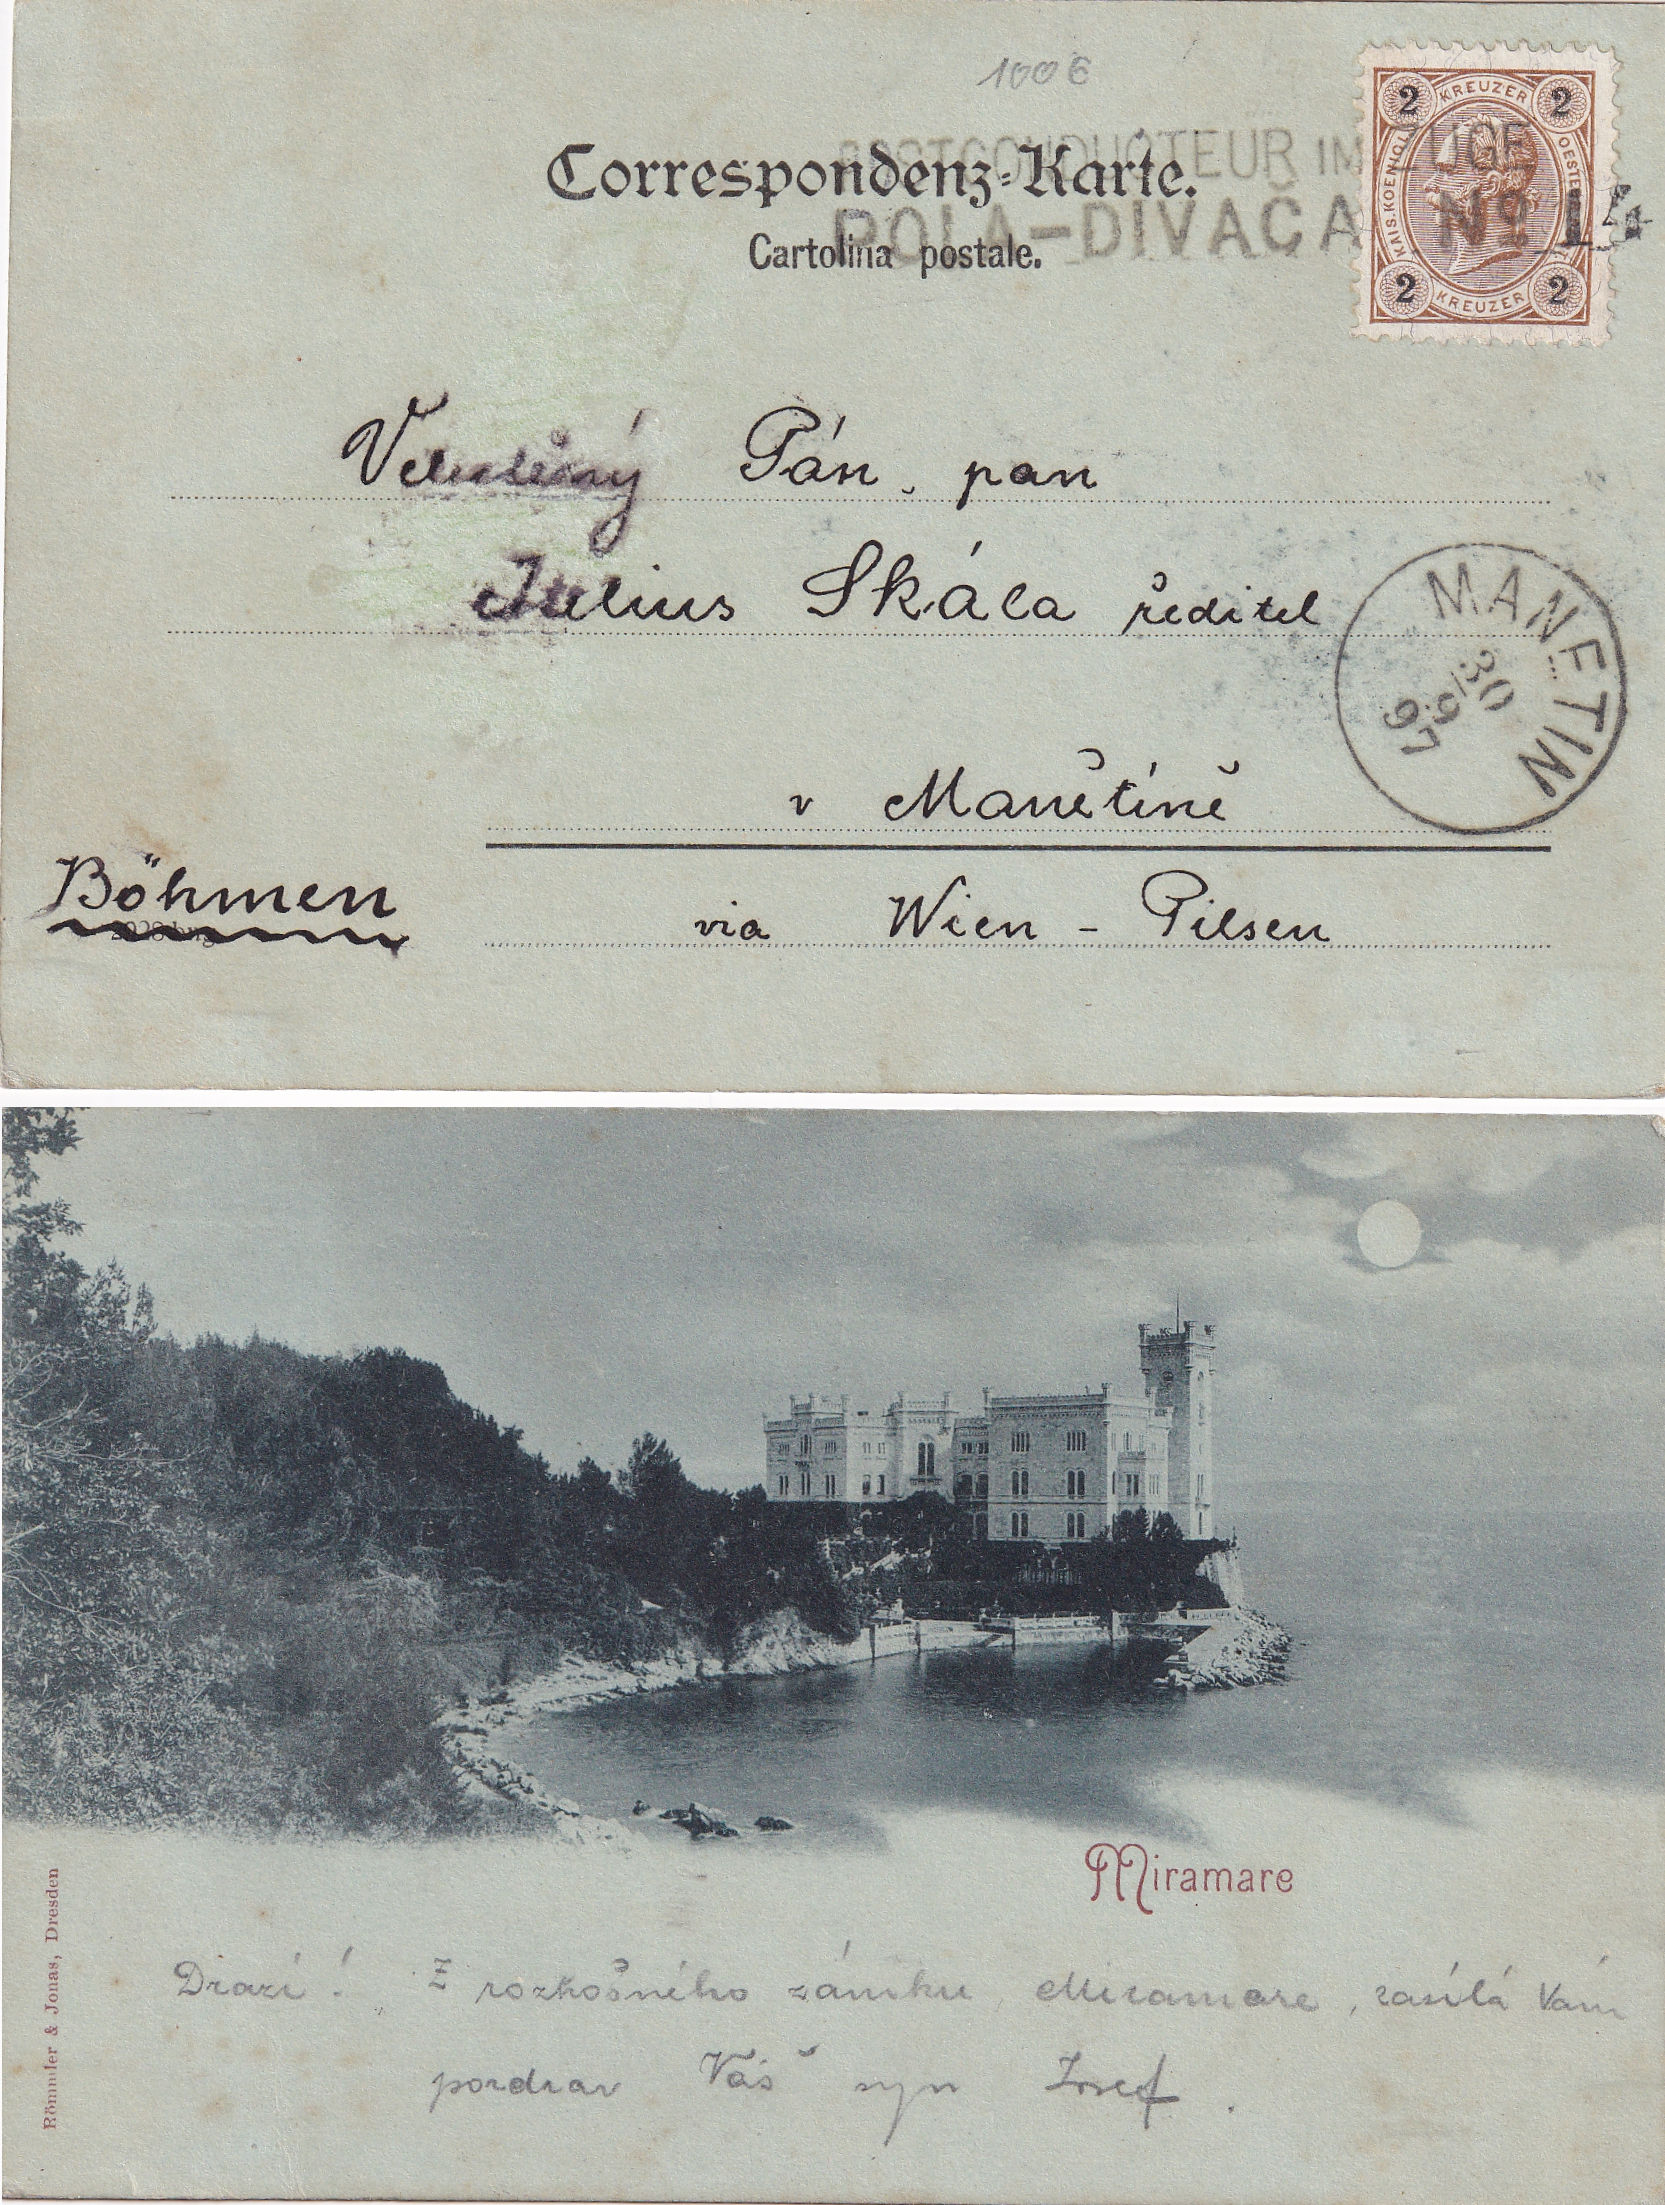 100 €
Correspondenz-Karte.
Cartolina postale.
POSTCONDUCTEUR IM ZUGE
POLA-DIVAČA Nº 14
2 KREUZER 2
KAIS. KOENIGL. OESTERR.
2 KREUZER 2
Velectěný Pán, pan
Julius Skála ředitel
MANETIN
30/9
97
v Manětíně
Böhmen
via Wien - Pilsen
Miramare
Römmler & Jonas, Dresden
Drazí! Z rozkošného zámku, Miramare, zasílá Vám
pozdrav Váš syn Josef.